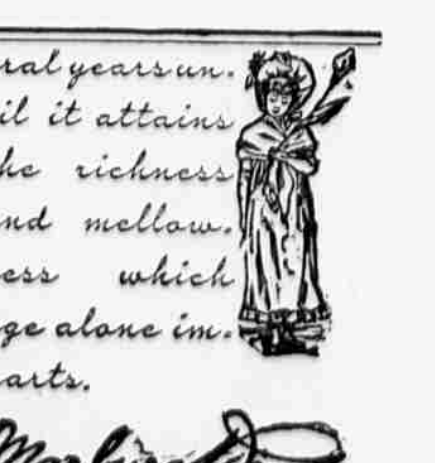 ral years un.
il it attains
he richness
nd mellow.
ess which
ge alone im.
arts.